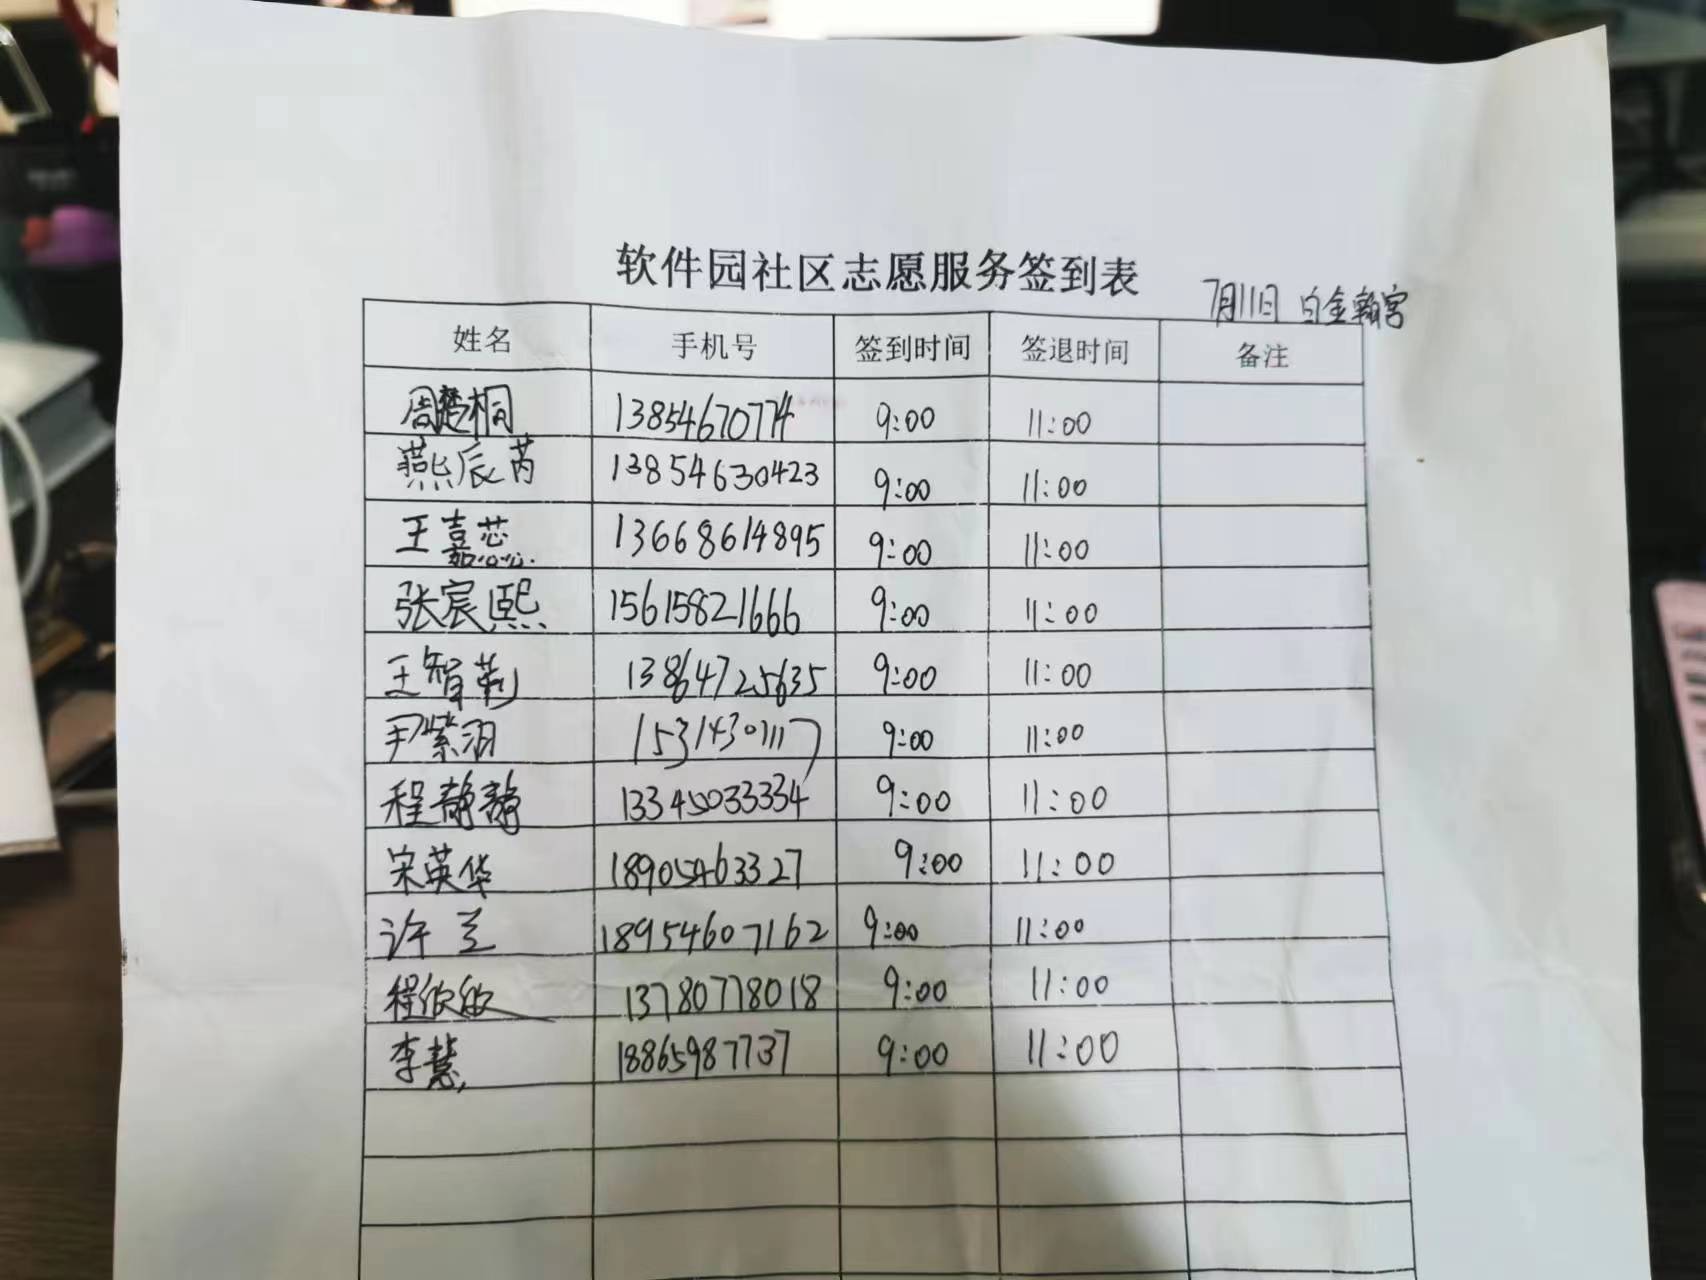 软件园社区志愿服务签到表
7月11日 白金翰宫
姓名 手机号 签到时间 签退时间 备注
周楚桐 13854670774 9:00 11:00
燕辰芮 13854630423 9:00 11:00
王嘉芯 13668614895 9:00 11:00
张宸熙 15615821666 9:00 11:00
王智莉 13864725635 9:00 11:00
尹紫羽 15314301117 9:00 11:00
程静静 13345033334 9:00 11:00
宋英华 18905463327 9:00 11:00
许兰 18954607162 9:00 11:00
程欣欣 13780778018 9:00 11:00
李慧 18865987737 9:00 11:00